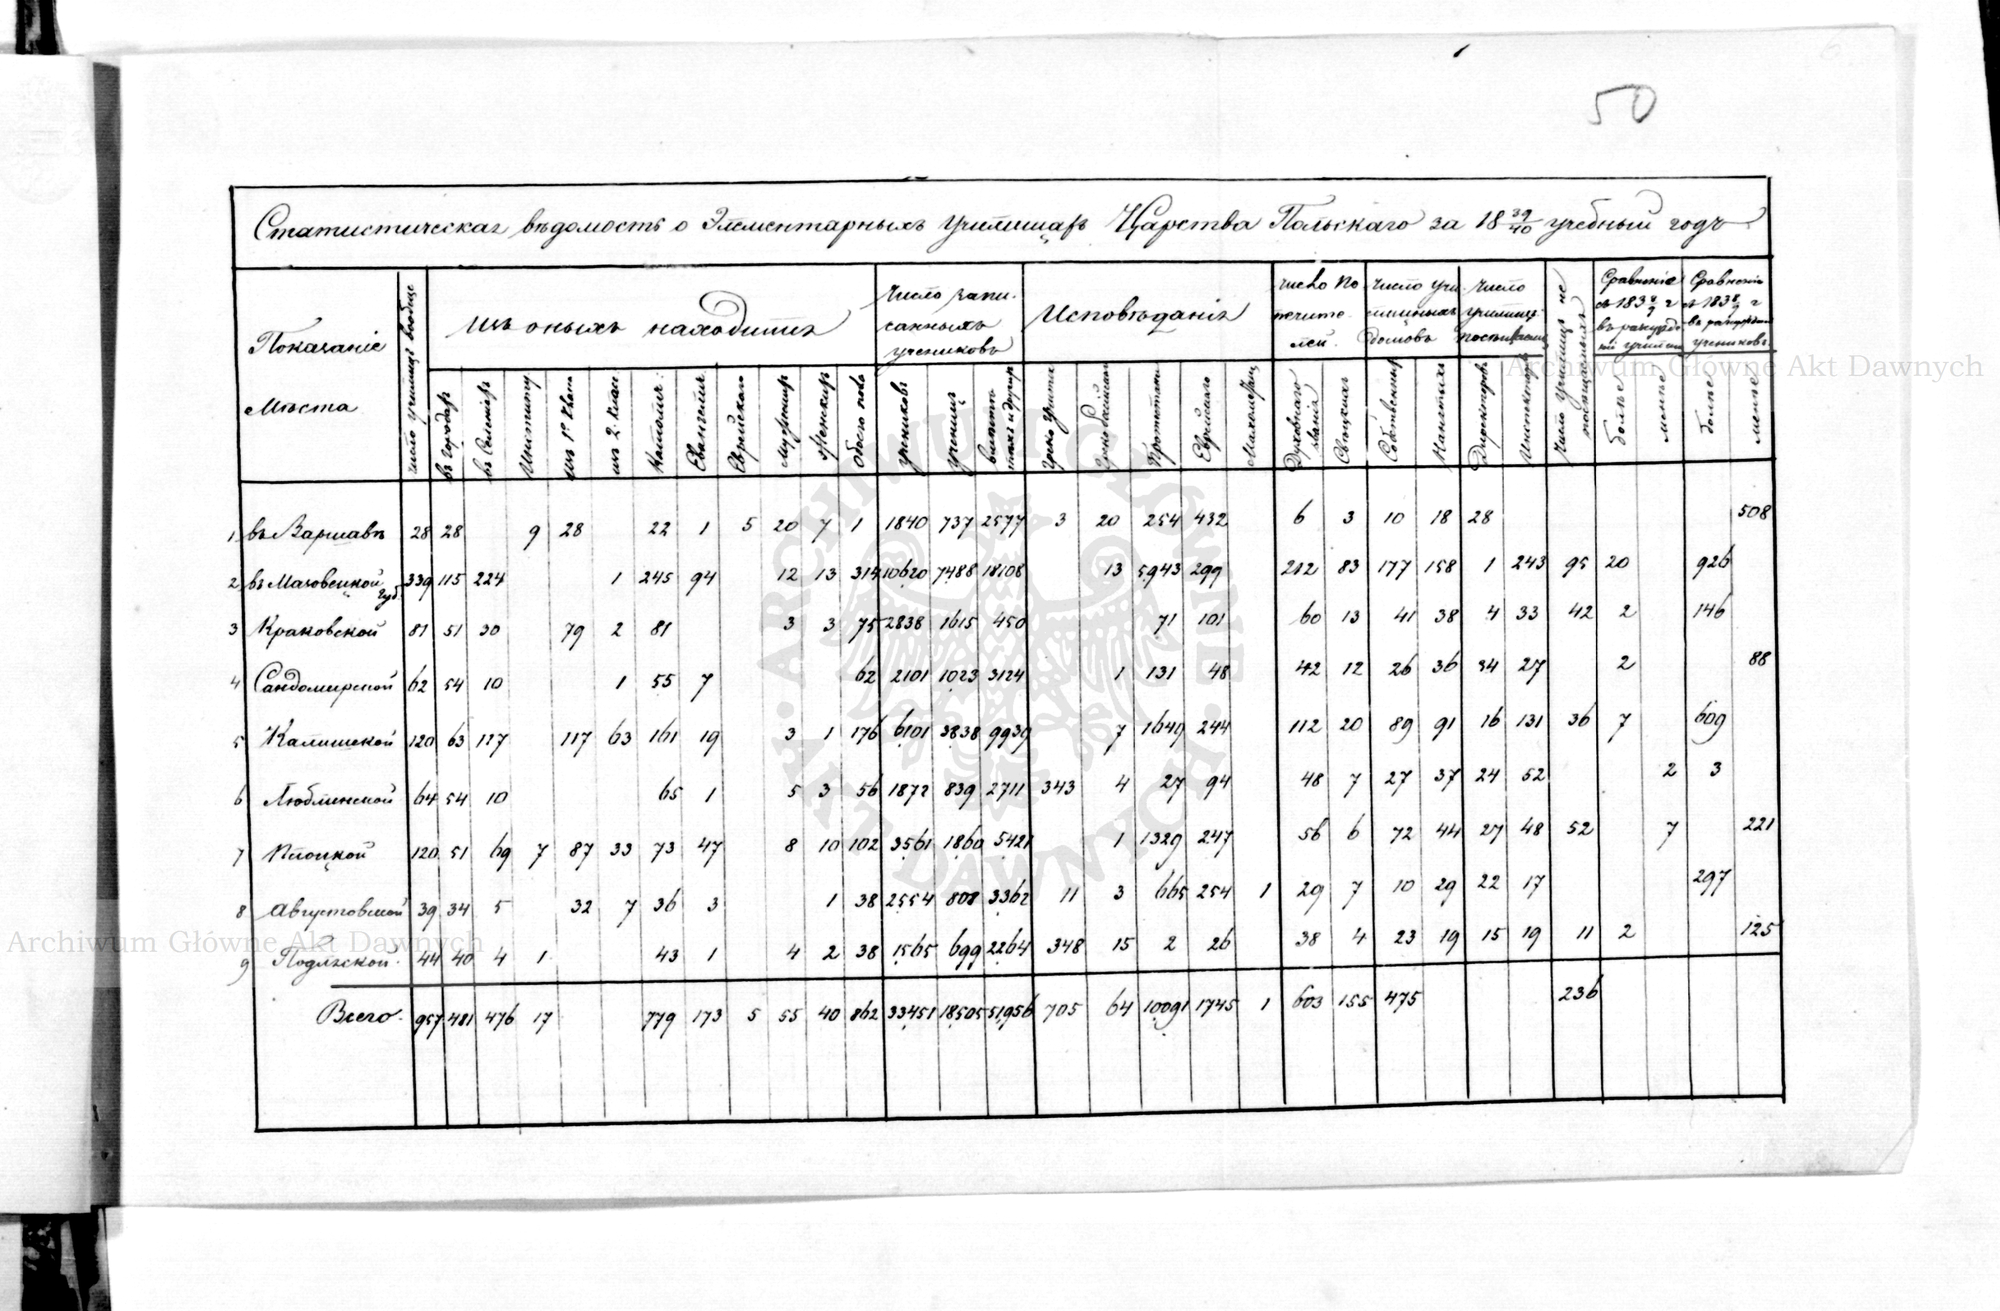 50
Статистическая вѣдомость о Элементарныхъ Училищахъ Царства Польскаго за 18 39/40 учебный годъ
Показаніе Мѣста
Число училищъ вообще
изъ оныхъ находится
Число записанныхъ учениковъ
Исповѣданія
Число Попечителей
Число училищныхъ домовъ
Число училищъ
Число училищъ не
Сравненіе съ 183 8/9 г
Сравненіе съ 183 8/9 г
въ городах
Институту
из 2 клас
Еврейскаго
обоего пола
учеников
учениц
Еврейскаго
Духовнаго звания
Свѣцкихъ
Собственных
Директоров
больше
менѣе
больше
менѣе
1 въ Варшавѣ 28 28 9 28 22 1 5 20 7 1 1840 737 2577 3 20 254 432 6 3 10 18 28 508
2 въ Мазовецкой губ. 339 115 224 1 245 94 12 13 314 10620 7488 18108 13 5943 299 212 83 177 158 1 243 95 20 926
3 Краковской 81 51 30 79 2 81 3 3 75 2838 1615 450 71 101 60 13 41 38 4 33 42 2 146
4 Сандомирской 62 54 10 1 55 7 62 2101 1023 3124 1 131 48 42 12 26 36 34 27 2 88
5 Калишской 120 63 117 117 63 161 19 3 1 176 6101 3838 9939 7 1649 244 112 20 89 91 16 131 36 7 609
6 Люблинской 64 54 10 65 1 5 3 56 1872 839 2711 343 4 27 94 48 7 27 37 24 52 2 3
7 Плоцкой 120 51 69 7 87 33 73 47 8 10 102 3561 1860 5421 1 1329 247 56 6 72 44 27 48 52 7 221
8 Августовской 39 34 5 32 7 36 3 1 38 2554 808 3362 11 3 665 254 1 29 7 10 29 22 17 297
9 Подляской 44 40 4 1 43 1 4 2 38 1565 699 2264 348 15 2 26 38 4 23 19 15 19 11 2 125
Всего 957 481 476 17 779 173 5 55 40 862 33451 18505 51956 705 64 10091 1745 1 603 155 475 236
Archiwum Główne Akt Dawnych
Archiwum Główne Akt Dawnych
ARCHIWUM GŁÓWNE AKT DAWNYCH